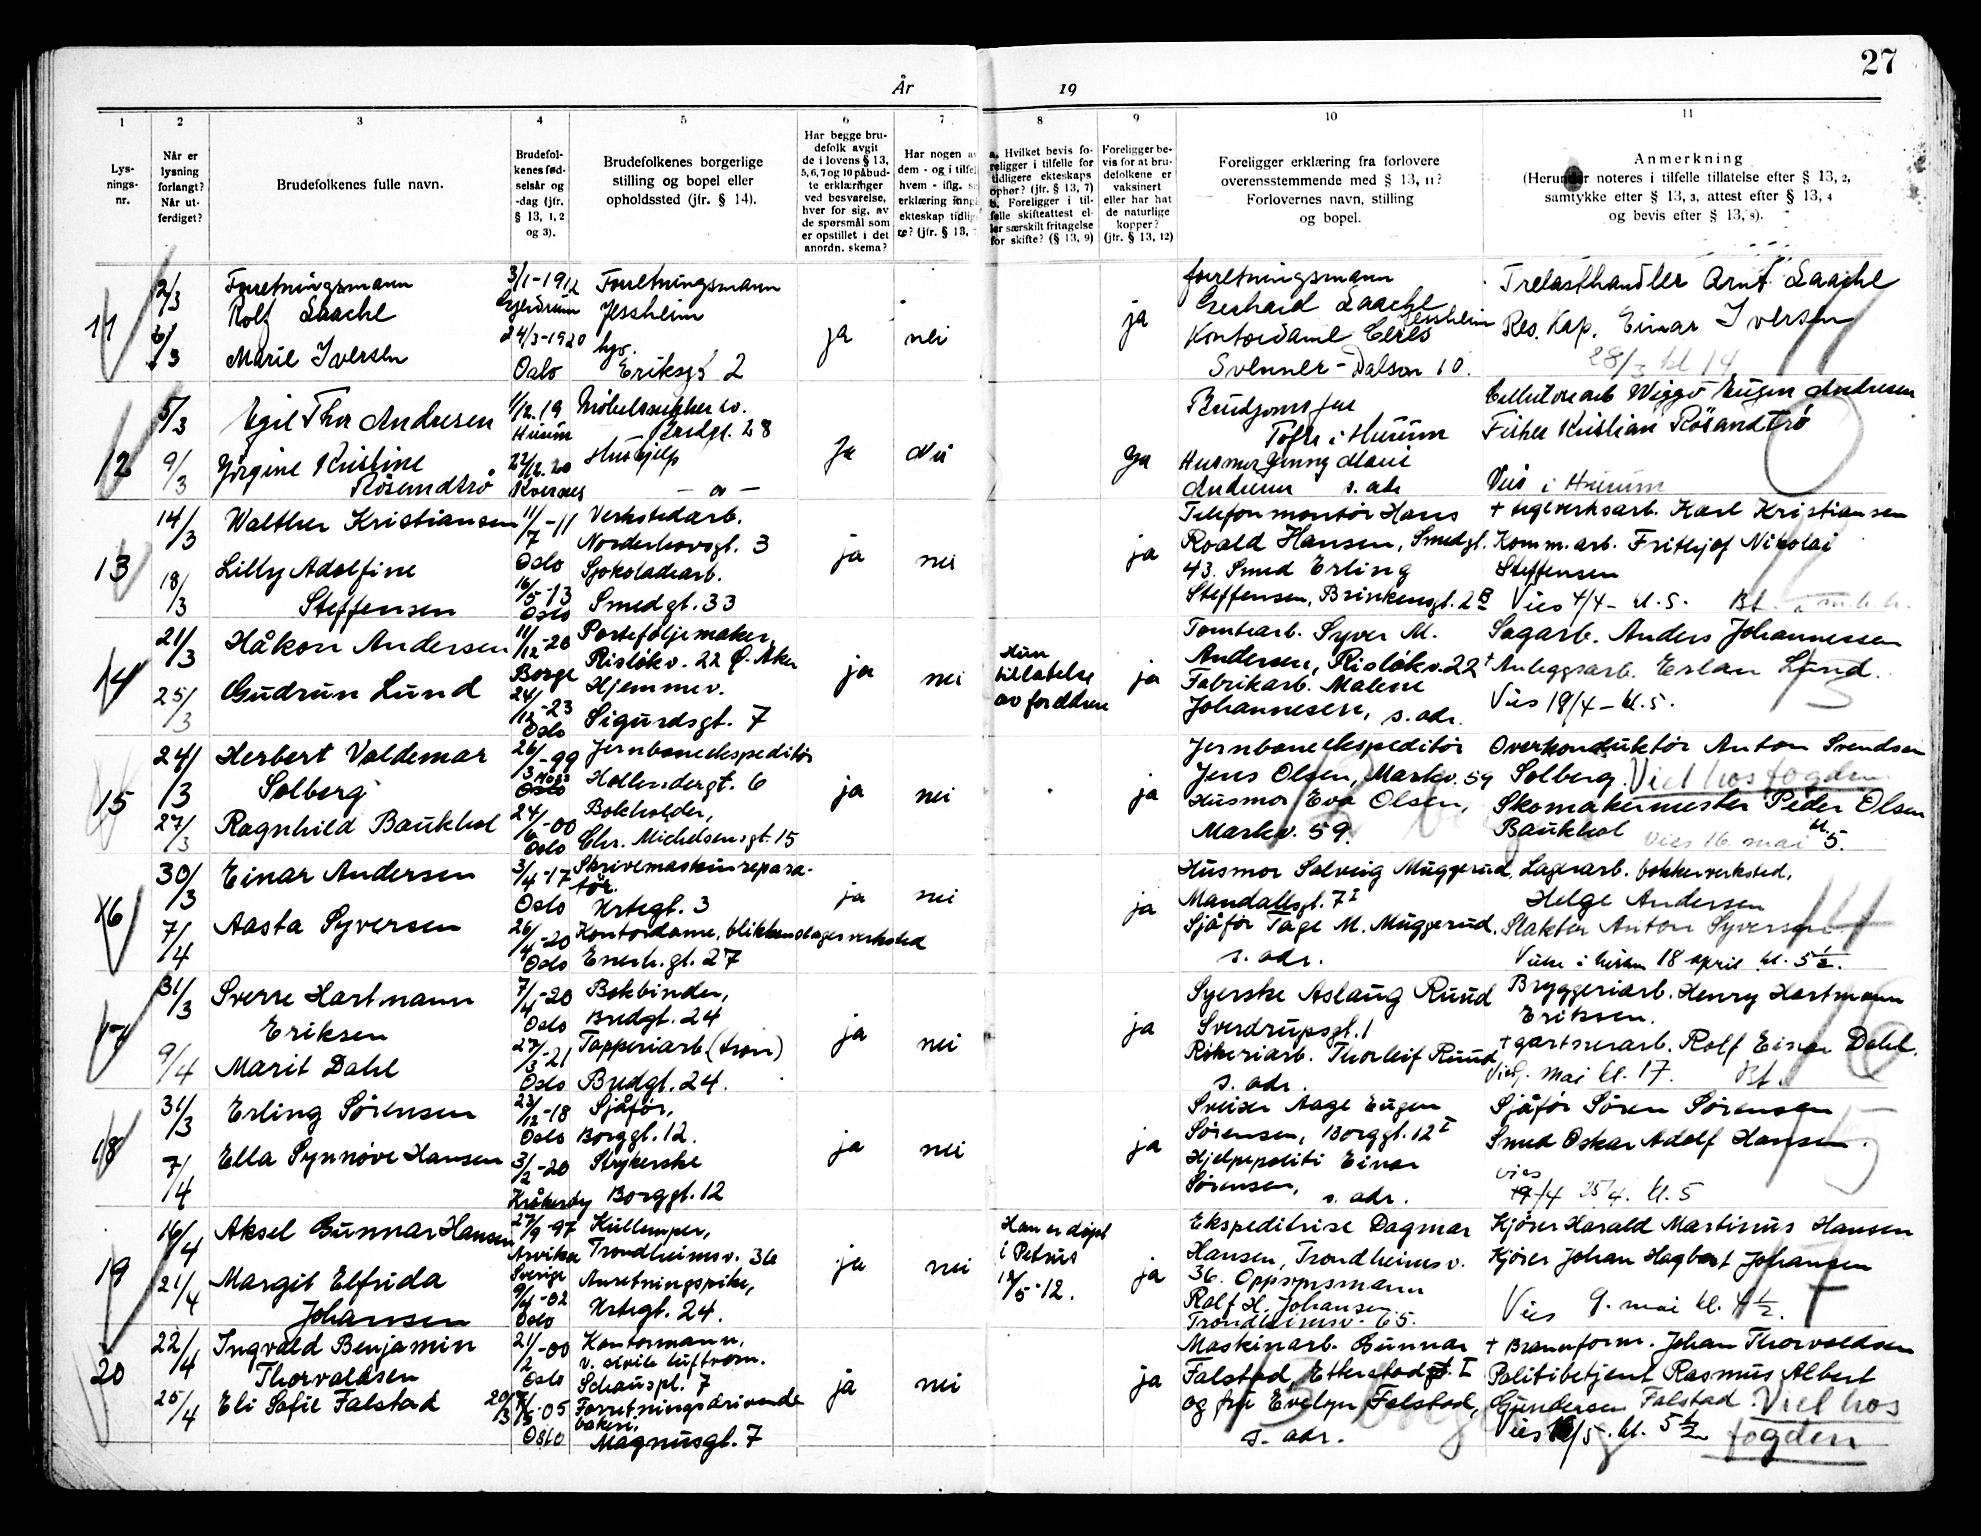 27
År 19
1 2 3 4 5 6 7 8 9 10 11
Lys-
nings-
nr.
Når er
lysning
forlangt?
Når ut-
ferdiget?
Brudefolkenes fulle navn.
Brudefol-
kenes fød-
selsår og
-dag (jfr.
§ 13, 1, 2
og 3).
Brudefolkenes borgerlige
stilling og bopel eller
opholdssted (jfr. § 14).
Har begge bru-
defolk avgit
de i lovens § 13,
5, 6, 7 og 10 påbud-
te erklæringer
ved besvarelse,
hver for sig, av
de spørsmål som
er opstillet i det
anordn. skema?
Har nogen av
dem - og i tilfel
hvem - iflg. si
erklæring inng
ekteskap tidlig
re? (jfr. § 13,
a. Hvilket bevis fo-
religger i tilfelle for
tidligere ekteskaps
ophør? (jfr. § 13, 7)
b. Foreligger i til-
felle skifteattest el-
ler særskilt fritagelse
for skifte? (§ 13, 9)
Foreligger be-
vis for at bru-
defolkene er
vaksinert
eller har hat
de naturlige
kopper?
(jfr. § 13, 12)
Foreligger erklæring fra forlovere
overensstemmende med § 13, 11?
Forlovernes navn, stilling
og bopel.
Anmerkning
(Herunder noteres i tilfelle tillatelse efter § 13, 2,
samtykke efter § 13, 3, attest efter § 13, 4
og bevis efter § 13, 8).
11
2/3
6/3
Forretningsmann
Rolf Laache
Marie Iversen
3/1-1912
Gjerdrum
24/3-1920
Oslo
Forretningsmann
Jessheim
hjv.
Eriksgt 2
ja
nei
ja
forretningsmann
Gerhard Laache
Jessheim
Kontordame Ceres
Svenner-Dalson 10.
Trelasthandler Arnt Laache
Res. Kap. Einar Iversen
28/3 kl 14
12
5/3
9/3
Egil Thor Andresen
Jörgine Kristine
Rösandtrö
1/12.19
Hurum
22/12.20
Kvernes
Møbelsnekker
Bredgt. 28
Hushjelp
- " -
Ja
Nei
Ja
Brudgoms far
Tofte i Hurum
Husmor Jenny Marie
Andresen s. adr
Cellulosearb Wiggo Eugen Andresen
Fisker Kristian Rösandtrö
Vies i Hurum
13
14/3
18/3
Walther Kristiansen
Lilly Adolfine
Steffensen
11/7-11
Oslo
16/5-13
Oslo
Verkstedarb.
Norderhovsgt. 3
Sjokoladearb.
Smedgt. 33
ja
nei
ja
Telefonmontör Hans
Roald Hansen, Smedgt.
43. Smed Erling
Steffensen, Brinkensgt. 2B
+ teglverksarb. Karl Kristiansen
Komm.arb. Frithjof Nikolai
Steffensen
Vies 4/4 - kl. 5. Bt.
14
21/3
25/3
Håkon Andersen
Gudrun Lund
11/12-20
Borge
24/12-23
Oslo
Porteføljemaker,
Risløkv. 22 Ø. Aker
Hjemmev.
Sigurdsgt. 7
ja
nei
Hun
tillatelse
av foreldrene
ja
Tomtearb. Syver M.
Andersen, Risløkv. 22
Fabrikarb. Malene
Johannesen, s. adr.
Sagarb. Anders Johannessen
+ Anleggsarb. Erlan Lund.
Vies 18/4 - kl. 5.
15
24/3
27/3
Herbert Valdemar
Solberg
Ragnhild Baukhol
26/3-99
Moss
Oslo
24/6-00
Oslo
Jernbaneekspeditör
Hollendergt. 6
Bokholder,
Chr. Michelsensgt. 15
ja
nei
ja
Jernbaneekspeditör
Jens Olsen, Markv. 59
Husmor Eva Olsen,
Markv. 59.
Overkonduktör Anton Svendsen
Solberg. Viet hos fogden
Skomakermester Peder Olsen
Baukhol Vies 16. mai kl. 5.
16
30/3
7/4
Einar Andersen
Aasta Syversen
3/4-17
Oslo
26/4-20
Oslo
Skrivemaskinrepara-
tör.
Urtegt. 3
Kontordame, blikkenslagerverksted
Enerh.gt. 27
ja
nei
ja
Husmor Solveig Muggerud,
Mandalsgt. 7 I
Sjåför Tage M. Muggerud.
s. adr.
Lagerarb. bokkerverksted,
Helge Andersen
Slakter Anton Syversen
Vies i kirken 18 april kl. 5 1/2.
17
31/3
9/4
Sverre Hartmann
Eriksen
Marit Dahl
7/4-20
Oslo
27/3-21
Oslo
Bokbinder,
Bredgt. 24
Tapperiarb.
Bredgt. 24.
ja
nei
ja
Syerske Aslaug Ruud
Sverdrupsgt. 1
Rökeriarb. Thorleif Ruud
s. adr.
Bryggeriarb. Henry Hartmann
Eriksen.
+ gartnerarb. Rolf Einar Dahl.
Vies mai kl. 17. Bt.
18
31/3
7/4
Erling Sörensen
Ella Synnöve Hansen
23/12-18
Oslo
3/2-20
Kråkeröy
Sjåför,
Borggt. 12.
Strykerske
Borggt. 12
ja
nei
ja
Sveiser Aage Eugen
Sörensen, Borggt. 12 I
Hjelpepoliti Einar
Sörensen, s. adr.
Sjåför Sören Sörensen
Smed Oskar Adolf Hansen.
vies
19/4 25/4. kl. 5
19
16/4
21/4
Aksel Gunnar Hansen
Margit Elfrida
Johansen
27/9-97
Arvika
Sverige
9/4-02
Oslo
Kullemper,
Trondheimsv. 36
Anretningspike,
Urtegt. 24.
ja
nei
Han er döpt
i Petrus
12/5-12.
ja
Ekspeditrise Dagmar
Hansen, Trondheimsv.
36. Oppsynsmann
Rolf H. Johansen.
Trondheimsv. 65.
Kjörer Harald Martinus Hansen
Kjörer Johan Hagbart Johansen
Vies 9. mai kl. 4 1/2.
20
22/4
25/4
Ingvald Benjamin
Thorvaldsen
Eli Sofie Falstad
21/2-00
Oslo
-05
Oslo
Kontormann,
v. sivile luftvern.
Schouspl. 7
Forretningsdrivende
bakeri,
Magnusgt. 7
ja
nei
ja
Maskinarb. Gunnar
Falstad, Etterstadgt. I
og fru Evelyn Falstad,
s. adr.
+ Brannform. Johan Thorvaldsen
Politibetjent Rasmus Albert
Gundersen Falstad. Viet hos
Vies 16/5. kl. 5 1/2 fogden